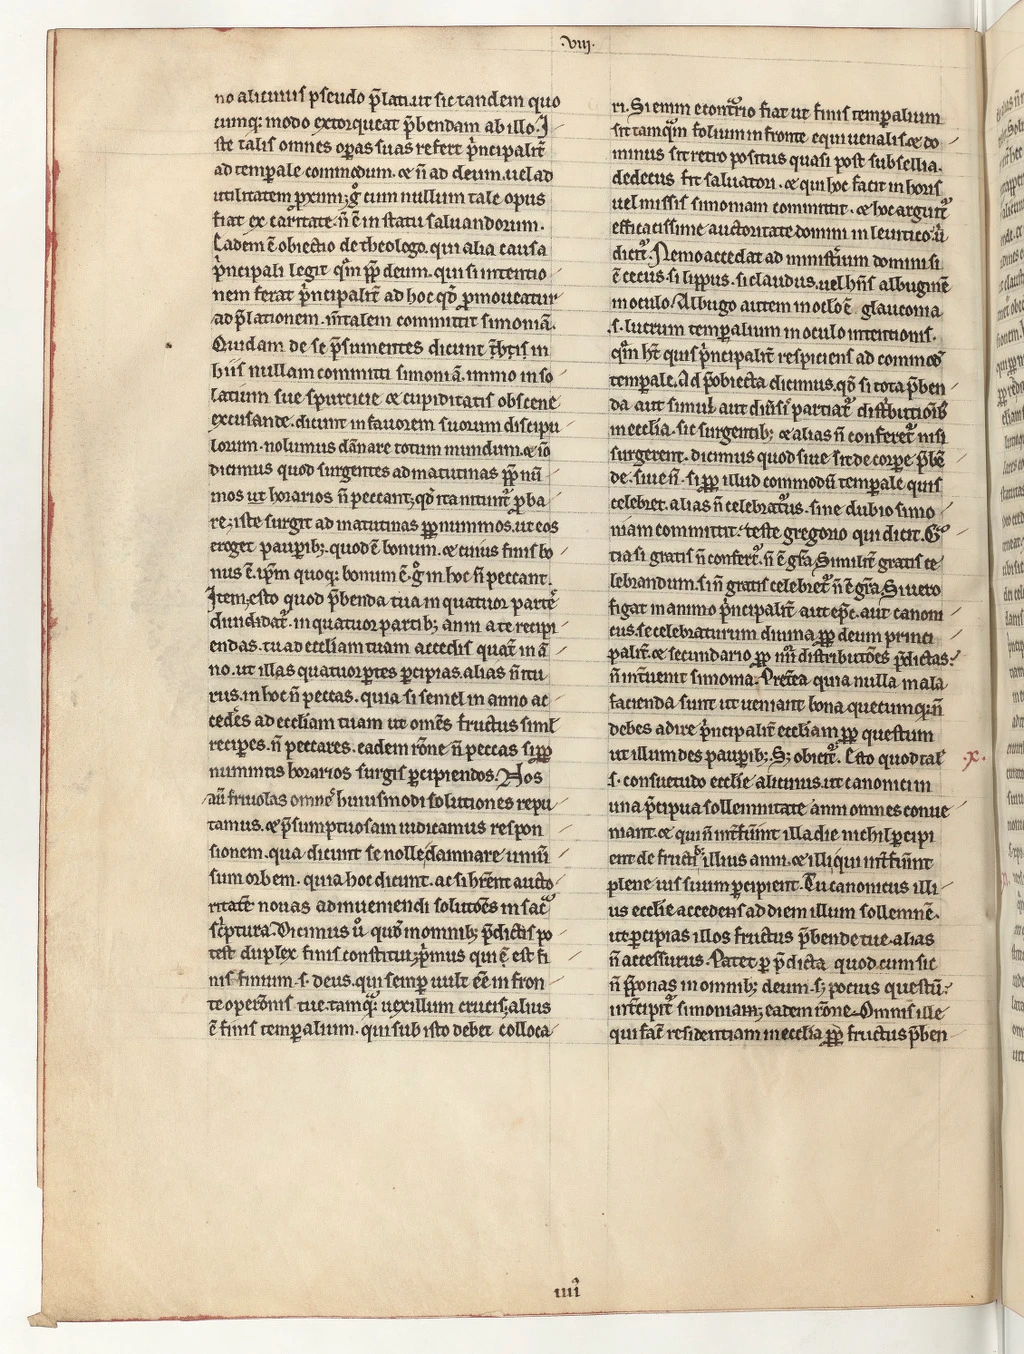 .viij.
no alicuius pseudo p̄lati. ut sic tandem quo
cumq; modo extorqueat p̄bendam ab illo. I
ste talis omnes oꝑas suas refert p̓ncipalit̄
ad temꝑale commodum. ⁊ n̄ ad deum. uel ad
utilitatem ꝓximi; g̊ cum nullum tale opus
fiat ex caritate. n̄ ē in statu saluandorum.
Eadem ē obiectio de theologo. qui alia causa
p̓ncipali legit qͣm ꝓp̄ deum. qui si intentio
nem ferat p̓ncipalit̄ ad hoc qd̓ ꝓmoueatur
ad p̄lationem. m̄talem committit simoniā.
Quidam de se p̄sumentes dicunt in
hiis nullam committi simoniā. immo in so
latium sue spurcicie ⁊ cupiditatis obscene
excusande. dicunt in fauorem suorum discipu
lorum. nolumus dānare totum mundum. ⁊ iō
dicimus quod surgentes ad matutinas ꝓp̄ nū
mos ut horarios n̄ peccant; qd̓ ita nitunt᷑ ꝓba
re; iste surgit ad matutinas ꝓp̄ nummos. ut eos
eroget pauꝑib; quod ē bonum. ⁊ cuius finis bo
nus ē. ip̄m quoq; bonum ē. g̊ in hoc n̄ peccant.
Item, esto quod p̄benda tua in quatuor partes
diuidat᷑. in quatuor partib; anni a te recipi
endas. tu ad eccl̄iam tuam accedis quat̄ in ā
no. ut illas quatuor ꝑtes ꝑcipias. alias n̄ itu
rus. in hoc n̄ peccas. quia si semel in anno ac
cedēs ad eccl̄iam tuam ut omēs fructus siml̄
reciꝑes. n̄ peccares. eadem rōne n̄ peccas si ꝓp̄
nummos horarios surgis ꝑcipiendos. Nos
aū friuolas omnes huiusmodi solutiones repu
tamus. ⁊ p̄sumptuosam iudicamus respon
sionem. qua dicunt se nolle damnare uniū
sum orbem. quia hoc dicunt. ac si hr̄ent aucto
ritatē nouas adinueniendi solutōēs in sacͣ
sc̓ptura. Dicimus u̓ quod in omnib; p̄dictis po
test duplex finis constitui; p̓mus qui ē est fi
nis finium .s. deus. qui semꝑ uult eē in fron
te oꝑōnis tue. tamqͣ; uexillum crucis; alius
ē finis temꝑalium. qui sub isto debet colloca
ri. Si enim econtrͣio fiat ut finis temꝑalium
sit tamqͣm folium in fronte equi uenalis. ⁊ do
minus sit retro positus quasi post subsellia.
dedecus fit saluatori. ⁊ qui hoc facit in horis
uel missis simoniam committit. ⁊ hoc arguit᷑
efficacissime auctoritate domini in leuitico. u̓
dicit᷑. Nemo accedat ad minist̓ium domini si
ē cecus. si lippus. si claudus. uel hn̄s albuginē
in oculo. Albugo autem in oclo ē glaucoma
.s. lucrum temꝑalium in oculo intentionis.
qͣm ht̄ quis p̓ncipalit̄ respiciens ad commodū
temꝑale. Ad p̄obiecta dicimus. qd̓ si tota p̄ben
da aut simul aut diuīsī partiat᷑ dist̓butionib;
in ecclīa. sic surgentib; ⁊ alias n̄ conferet᷑ nisi
surgerent. dicimus quod siue sit de corꝑe p̄bē
de. siue n̄. si ꝓp̄ illud commodū temꝑale quis
celebret. alias n̄ celebratͧus. sine dubio simo
niam committit. teste gregorio qui dicit. Gͣ
tia si gratis n̄ confert᷑. n̄ ē gͣa. Similit̄ gratis ce
lebrandum. si n̄ gratis celebret᷑ n̄ ē gͣa. Si uero
figat in animo p̓ncipalit̄ aut ep̄c. aut canoni
cus. se celebraturum diuina ꝓp̄ deum princi
palit̄. ⁊ secundario ꝓp̄ distributōes p̄dictas.
n̄ incurrit simonia. Pret̓ea quia nulla mala
facienda sunt ut ueniant bona quecumq;. n̄
debes adire p̓ncipalit̄ eccl̄iam ꝓp̄ questum
ut illum des pauꝑib; S; obicit᷑. Esto quod tal̄
.x.
.s. consuetudo ecclīe alicuius. ut canonici in
una p̄cipua sollemnitate anni omnes conue
niant. ⁊ qui n̄ int̓fūint illa die nichil ꝑcipi
ent de fructib; illius anni. ⁊ illi qui int̓fūint
plene uis suum ꝑcipient. Tu canonicus illi
us ecclīe accedens ad diem illum sollemnē.
ut ꝑcipias illos fructus p̄bende tue. alias
n̄ accessurus. Patet ꝑ p̄dicta quod cum sic
n̄ p̄ponas in omnib; deum. s; pocius questū.
incipit simoniam; eadem rōne. Omnis ille
qui fac̄ residentiam in ecclīa ꝓp̄ fructus p̄ben
iiii